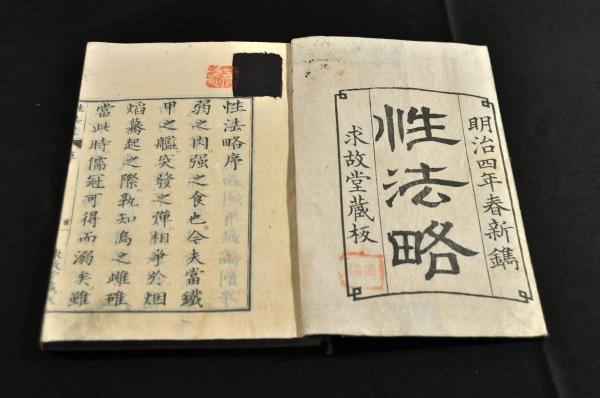 明治四年春新鐫
性法略
求故堂藏板
性法略序
弱之肉强之食也。今夫當鐵
甲之艦突發之彈。相爭於烟
焰驀起之際。孰知烏之雌雄
當此時。儒冠可得而溺矣。雖